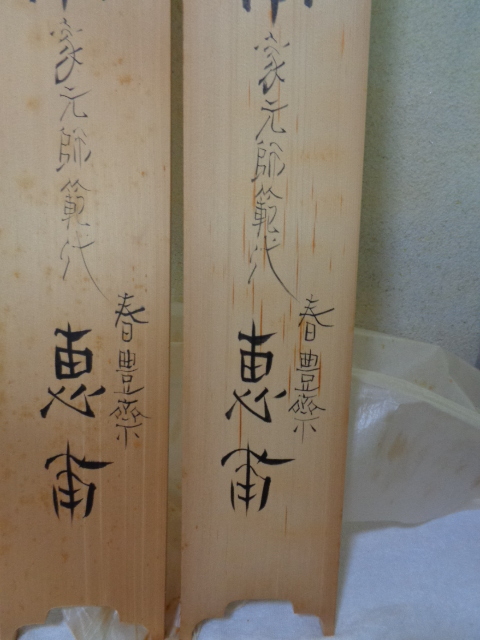 家元師範代
春豊斎
恵甫
家元師範代
春豊斎
恵甫